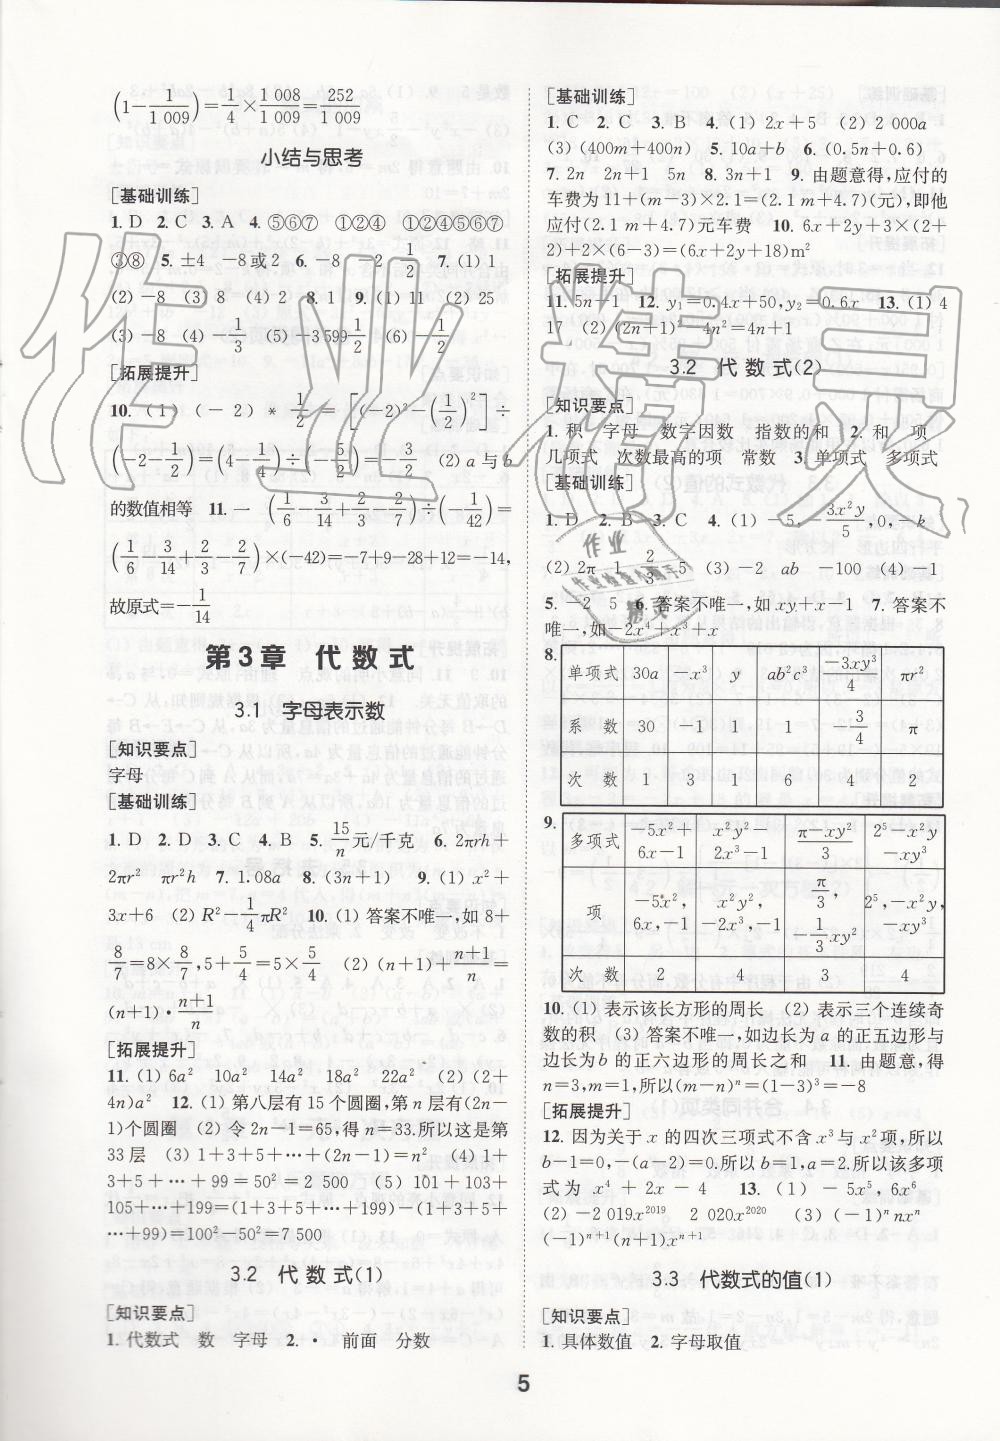 (1-1/1 009)=1/4×1 008/1 009=252/1 009
小结与思考
[基础训练]
1. D 2. C 3. A 4. ⑤⑥⑦ ①②④ ①②④⑤⑥⑦
③⑧ 5. ±4 -8或2 6. -8 -2 1/2 7. (1) 1
(2) -8 (3) 8 (4) 2 8. 1 9. (1) 11 (2) 25
(3) -8 (4) -1/3 (5) -3 599 1/2 (6) -1/2
[拓展提升]
10. (1) (-2) * 1/2 = [(-2)²-(1/2)²]÷
(-2-1/2)=(4-1/4)÷(-5/2)=-3/2 (2) a 与 b
的数值相等 11. 一 (1/6-3/14+2/3-2/7)÷(-1/42)=
(1/6-3/14+2/3-2/7)×(-42)=-7+9-28+12=-14,
故原式=-1/14
第3章 代数式
3.1 字母表示数
[知识要点]
字母
[基础训练]
1. D 2. D 3. C 4. B 5. 15/n元/千克 6. 2πrh+
2πr² πr²h 7. 1.08a 8. (3n+1) 9. (1) x²+
3x+6 (2) R²-1/4πR² 10. (1) 答案不唯一,如 8+
8/7=8×8/7,5+5/4=5×5/4 (2) (n+1)+(n+1)/n=
(n+1)·(n+1)/n
[拓展提升]
11. (1) 6a² 10a² 14a² 18a² 22a² (2) (2+
4n)a² 12. (1) 第八层有15个圆圈,第n层有(2n-
1)个圆圈 (2) 令2n-1=65,得n=33.所以这是第
33层 (3) 1+3+5+…+(2n-1)=n² (4) 1+
3+5+…+99=50²=2 500 (5) 101+103+
105+…+199=(1+3+5+…+199)-(1+3+5+
…+99)=100²-50²=7 500
3.2 代数式(1)
[知识要点]
1. 代数式 数 字母 2. · 前面 分数
[基础训练]
1. C 2. C 3. B 4. (1) 2x+5 (2) 2 000a
(3) (400m+400n) 5. 10a+b 6. (0.5n+0.6)
7. 2n 2n+1 5n 8. 3n+1 9. 由题意得,应付的
车费为11+(m-3)×2.1=(2.1m+4.7)(元),即他
应付(2.1m+4.7)元车费 10. 6x+2y+3×(2+
2)+2×(6-3)=(6x+2y+18)m²
[拓展提升]
11. 5n+1 12. y₁=0.4x+50,y₂=0.6x 13. (1) 4
17 (2) (2n+1)²-4n²=4n+1
3.2 代数式(2)
[知识要点]
1. 积 字母 数字因数 指数的和 2. 和 项
几项式 次数最高的项 常数 3. 单项式 多项式
[基础训练]
1. D 2. B 3. C 4. (1) -5,-3x²y/5,0,-k
(2) 2π 1 2/3 5 (3) -2 ab -100 (4) -1
5. -2 5 6. 答案不唯一,如xy+x-1 7. 答案不
唯一,如-2x⁴+x³+x
8. 单项式 30a -x³ y ab²c³ -3xy³/4 πr²
系数 30 -1 1 1 -3/4 π
次数 1 3 1 6 4 2
9. 多项式 -5x²+6x-1 x²y²-2x³-1 (π-xy²)/3 2⁵-x²y-xy³
项 -5x²,6x,-1 x²y²,-2x³,-1 π/3,-1/3xy² 2⁵,-x²y,-xy³
次数 2 4 3 4
10. (1) 表示该长方形的周长 (2) 表示三个连续奇
数的积 (3) 答案不唯一,如边长为a的正五边形与
边长为b的正六边形的周长之和 11. 由题意,得
n=3,m=1,所以(m-n)ⁿ=(1-3)³=-8
[拓展提升]
12. 因为关于x的四次三项式不含x³与x²项,所以
b-1=0,-(a-2)=0.所以b=1,a=2.所以该多项
式为 x⁴+2x-4 13. (1) -5x⁵,6x⁶
(2) -2 019x²⁰¹⁹ 2 020x²⁰²⁰ (3) (-1)ⁿnxⁿ
(-1)ⁿ⁺¹(n+1)xⁿ⁺¹
3.3 代数式的值(1)
[知识要点]
1. 具体数值 2. 字母取值
5